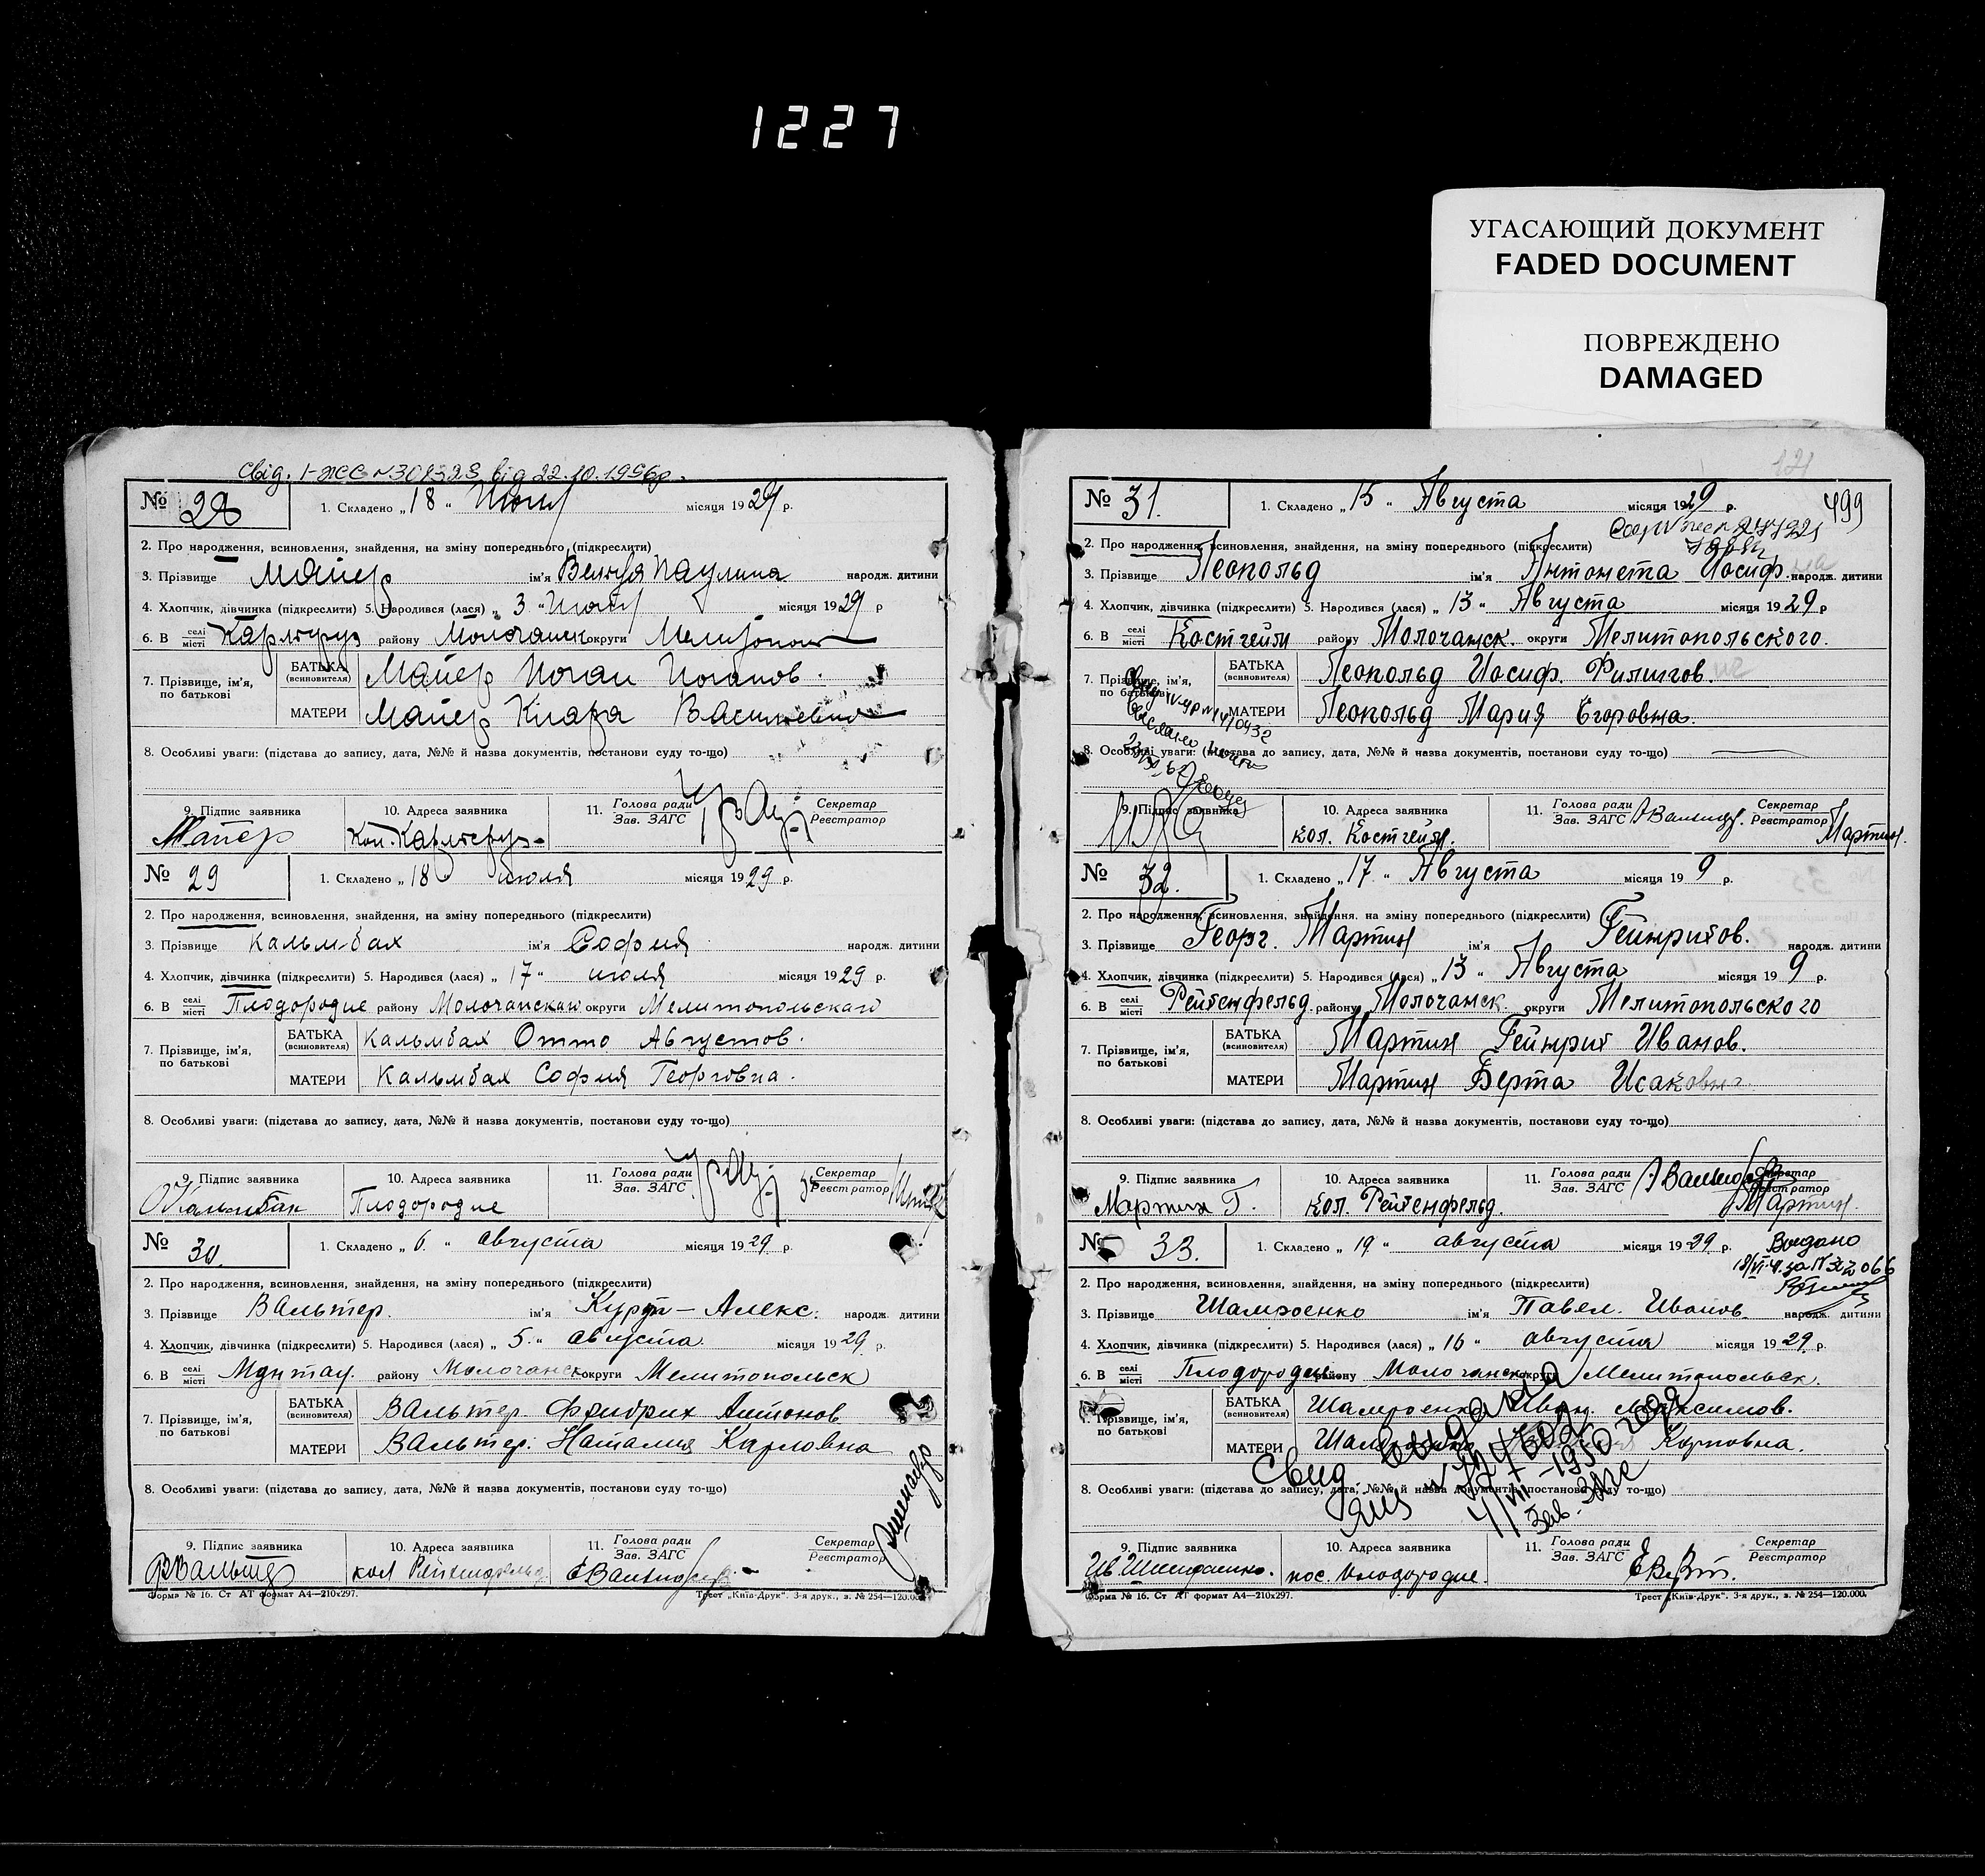 1227
УГАСАЮЩИЙ ДОКУМЕНТ
FADED DOCUMENT
ПОВРЕЖДЕНО
DAMAGED
Свід. I-ЖС №301323 від 22.10.1996р.
№ 28 1. Складено „ 18 “ Июля місяця 1929 р.
2. Про народження, всиновлення, знайдення, на зміну попереднього (підкреслити)
3. Прізвище Майер ім'я Паулина народж. дитини
4. Хлопчик, дівчинка (підкреслити) 5. Народився (лася) „ 3 “ Июля місяця 1929 р
6. В селі місті Карлсруэ району Молочанск округи Мелитопол
7. Прізвище, ім'я, по батькові БАТЬКА (всиновителя) Майер Иоган Иоганов.
МАТЕРИ Майер Клара Васильевна
8. Особливі уваги: (підстава до запису, дата, №№ й назва документів, постанови суду то-що)
9. Підпис заявника 10. Адреса заявника 11. Голова ради Зав. ЗАГС Секретар Реєстратор
Майер Кол. Карлсруэ
№ 29 1. Складено „ 18 “ июля місяця 1929 р.
2. Про народження, всиновлення, знайдення, на зміну попереднього (підкреслити)
3. Прізвище Кальмбах ім'я София народж. дитини
4. Хлопчик, дівчинка (підкреслити) 5. Народився (лася) „ 17 “ июля місяця 1929 р.
6. В селі місті Плодородие району Молочанскаго округи Мелитопольскаго
7. Прізвище, ім'я, по батькові БАТЬКА (всиновителя) Кальмбах Отто Августов.
МАТЕРИ Кальмбах София Георговна.
8. Особливі уваги: (підстава до запису, дата, №№ й назва документів, постанови суду то-що)
9. Підпис заявника 10. Адреса заявника 11. Голова ради Зав. ЗАГС Секретар Реєстратор
О Кальмбах Плодородие
№ 30 1. Складено „ 6. “ августа місяця 1929 р.
2. Про народження, всиновлення, знайдення, на зміну попереднього (підкреслити)
3. Прізвище Вальтер. ім'я Курт - Алекс. народж. дитини
4. Хлопчик, дівчинка (підкреслити) 5. Народився (лася) „ 5. “ августа місяця 1929 р.
6. В селі місті Мунтау. району Молочанск округи Мелитопольск
7. Прізвище, ім'я, по батькові БАТЬКА (всиновителя) Вальтер Фридрих Антонов
МАТЕРИ Вальтер. Наталия Карловна
8. Особливі уваги: (підстава до запису, дата, №№ й назва документів, постанови суду то-що)
9. Підпис заявника 10. Адреса заявника 11. Голова ради Зав. ЗАГС Секретар Реєстратор
Ф Вальтер кол Рейтенфельд
Форма № 16. Ст АТ формат А4—210х297. Трест „Київ-Друк“. 3-я друк., з. № 254—120.000.
121
499
№ 31. 1. Складено „ 15 “ Августа місяця 1929 р.
2. Про народження, всиновлення, знайдення, на зміну попереднього (підкреслити)
3. Прізвище Леопольд ім'я Антонета Иосиф. народж. дитини
4. Хлопчик, дівчинка (підкреслити) 5. Народився (лася) „ 13 “ Августа місяця 1929 р
6. В селі місті Костгейм району Молочанск. округи Мелитопольского.
7. Прізвище, ім'я, по батькові БАТЬКА (всиновителя) Леопольд Иосиф. Филипов.
МАТЕРИ Леопольд Мария Егоровна.
8. Особливі уваги: (підстава до запису, дата, №№ й назва документів, постанови суду то-що)
9. Підпис заявника 10. Адреса заявника 11. Голова ради Зав. ЗАГС Секретар Реєстратор
кол. Костгейм. Мартин.
№ 32. 1. Складено „ 17 “ Августа місяця 19 9 р.
2. Про народження, всиновлення, знайдення, на зміну попереднього (підкреслити)
3. Прізвище Георг. Мартин ім'я Гейнрихов. народж. дитини
4. Хлопчик, дівчинка (підкреслити) 5. Народився (лася) „ 13 “ Августа місяця 19 9 р.
6. В селі місті Рейтенфельд району Молочанск округи Мелитопольского
7. Прізвище, ім'я, по батькові БАТЬКА (всиновителя) Мартин Гейнрих Иванов.
МАТЕРИ Мартин Берта Исаковна
8. Особливі уваги: (підстава до запису, дата, №№ й назва документів, постанови суду то-що)
9. Підпис заявника 10. Адреса заявника 11. Голова ради Зав. ЗАГС Секретар Реєстратор
Мартин Г. Кол. Рейтенфельд. Мартин.
№ 33. 1. Складено „ 19 “ августа місяця 1929 р. Выдано
2. Про народження, всиновлення, знайдення, на зміну попереднього (підкреслити)
3. Прізвище Шамроенко ім'я Павел. Иванов. народж. дитини
4. Хлопчик, дівчинка (підкреслити) 5. Народився (лася) „ 16 “ августа місяця 1929 р.
6. В селі місті Плодородие району Молочанск округи Мелитопольск.
7. Прізвище, ім'я, по батькові БАТЬКА (всиновителя) Шамроенко Иван. Максимов.
МАТЕРИ Карповна.
Свид. выдано
4/VII-1950 года
Зав. Загс
8. Особливі уваги: (підстава до запису, дата, №№ й назва документів, постанови суду то-що)
9. Підпис заявника 10. Адреса заявника 11. Голова ради Зав. ЗАГС Секретар Реєстратор
пос. Плодородие.
Форма № 16. Ст АТ формат А4—210х297. Трест „Київ-Друк“. 3-я друк., з. № 254—120.000.